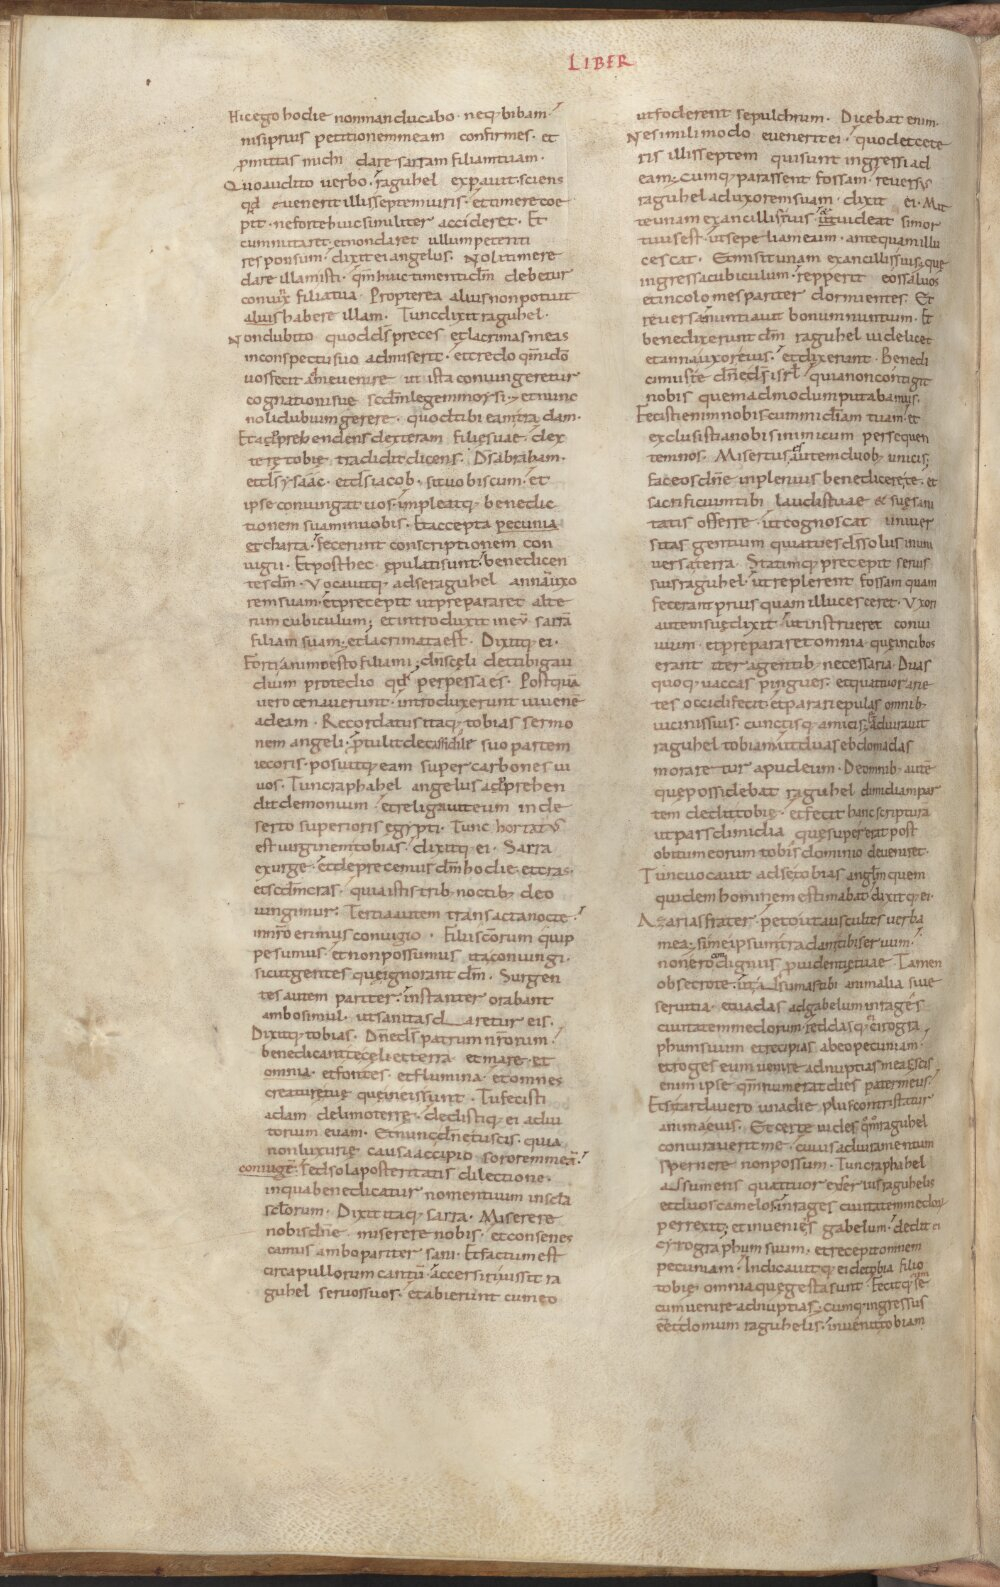 LIBER
Hic ego hodie non manducabo neq; bibam
nisi prius petitionem meam confirmes. et
p̄mittas michi dare sarram filiam tuam.
Quo audito verbo. raguhel expauit. sciens
qd̄ euenerit illis septem uiris. et timere coe
pit. ne forte huic similiter accideret. Et
cum nutaret. et non daret ullum petenti
responsum. dixit ei angelus. Noli timere
dare illam isti. qm̄ huic timenti dm̄ debetur
coniux̄ filia tua. Propterea alius non potuit
alius habere illam. Tunc dixit raguhel.
Non dubito quod ds̄ preces et lacrimas meas
in conspectu suo admiserit. et credo qm̄ ideo
uos fecit ad me uenire ut ista coniungeretur
cognationi suę scdm legem moysi. et nunc
noli dubium gerere. quod tibi eam tradam.
Et adp̄rehendens dexteram filię suae. dex
terę tobię tradidit dicens. Ds̄ abraham.
et ds̄ ysaac. et ds̄ iacob. sit uobiscum. et
ipse coniungat uos. impleatq; benedic
tionem suam in uobis. Et accepta pecunia
et charta. fecerunt conscriptionem con
iugii. Et post hec epulati sunt. benedicen
tes dm̄. Vocauitq; ad se raguhel anna uxo
rem suam. et precepit ut prepararet alte
rum cubiculum; et introduxit in eū sarrā
filiam suam. et lacrimata est. Dixitq; ei.
Forti animo esto filia mi; dn̄s cęli det tibi gau
dium pro tedio qd̄ perpessa es. Postquā
uero cenauerunt. introduxerunt iuuenē
ad eam. Recordatus itaq; tobias sermo
num angeli. p̄tulit de cassidile suo partem
iecoris. posuitq; eam super carbones ui
uos. Tunc raphahel angelus adp̄rehen
dit demonium et religauit eum in de
serto superioris egypti. Tunc hortatus
est uirginem tobias. dixitq; ei. Sarra
exurge. et deprecemur dm̄ hodie. et cras.
et scdm cras. quia istis trib; noctib; deo
iungimur. Tertia autem transacta nocte.
in nr̄o erimus coniugio. Filii scorum quip
pe sumus. et non possumus ita coniungi.
sicut gentes quę ignorant dm̄. Surgen
tes autem pariter. instanter orabant
ambo simul. ut sanitas daretur eis.
Dixitq; tobias. Dn̄e ds̄ patrum nr̄orum.
benedicant te cęli et terra et mare. et
omnia et fontes. et flumina. et omnes
creature tuę que in eis sunt. Tu fecisti
adam de limo terrę. dedistiq; ei adiu
torium euam. Et nunc dn̄e tu scis. quia
non luxurię causa accipio sororem meā.
coniugē. sed sola posteritatis dilectione.
in qua benedicatur nomen tuum in scła
sclorum. Dixit itaq; sarra. Miserere
nobis dn̄e miserere nobis. et consenes
camus ambo pariter sani. Et factum est
circa pullorum cantū. accersiri iussit ra
guhel seruos suos. et abierunt cum eo
ut foderent sepulchrum. Dicebat enim.
Ne simili modo euenerit ei. quod et cete
ris illis septem qui sunt ingressi ad
eam. Cumq; parassent fossam. reuersus
raguhel ad uxorem suam. dixit ei. Mit
te unam ex ancillis tuis. ut uideat si mor
tuus est. ut sepeliam eum. antequam illu
cescat. Et misit unam ex ancillis suis. que
ingressa cubiculum. repperit eos saluos
et incolomes pariter dormientes. Et
reuersa nuntiauit bonum nuntium. Et
benedixerunt dm̄ raguhel uidelicet
et anna uxor eius. et dixerunt. Benedi
cimus te dn̄e ds̄ isrł. quia non contigit
nobis quemadmodum putabamus.
Fecisti enim nobiscum miam tuam. et
exclusisti a nobis inimicum persequen
tem nos. Misertus autem duob; unicis;
Fac eos dn̄e in plenius benedicere te. et
sacrificium tibi laudis tuae & suę sani
tatis offerre. ut cognoscat uniuer
sitas gentium quia tu es ds̄ solus in uni
uersa terra. Statimq; precepit seruis
suis raguhel. ut replerent fossam quam
fecerant prius quam illucesceret. Vxori
autem suę dixit. ut instrueret conui
uium. et prepararet omnia. quę in cibos
erant iter agentib; necessaria. Duas
quoq; uaccas pingues. et quatuor arie
tes occidi fecit. et parari epulas omnib;
uicinis suis. cunctisq; amicis; Adiurauit
raguhel tobiam. ut duas ebdomadas
moraretur apud eum. De omnib; autē
quę possidebat raguhel dimidiam par
tem dedit tobię. et fecit hanc scripturā
ut pars dimidia quę supererat post
obitum eorum tobię dominio deueniret.
Tunc uocauit ad se tobias anglm̄ quem
quidem hominem estimabat. dixitq; ei.
Azarias frater. peto ut auscultes uerba
mea; si me ipsum tradam tibi seruum.
non ero condignus p̄uidentię tuae. Tamen
obsecro te. ut adsumas tibi animalia siue
seruitia. et uadas ad gabelum in rages
ciuitatem medorum. reddasq; ei cirogra
phum suum et recipias ab eo pecuniam.
et roges eum uenire ad nuptias meas. scis
enim ipse qm̄ numerat dies pater meus.
Et si tardauero una die plus. contristatur
anima eius. Et certe uides qm̄ raguhel
coniurauerit me. cuius adiuramentum
spernere non possum. Tunc raphahel
assumens quattuor ex seruis raguhelis
et duos camelos. in rages ciuitatem medorū
perrexit; et inueniens gabelum. dedit ei
cyrographum suum. et recepit omnem
pecuniam. Indicauitq; ei de tobia filio
tobię. omnia quę gesta sunt. Fecitq; secum
cum uenire ad nuptias; cumq; ingressus
eēt domum raguhelis. inuenit tobiam